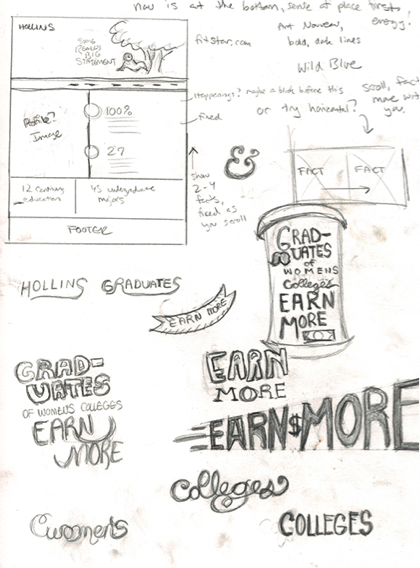 now is at the bottom, sense of place first,
energy.
HOLLINS
fitstar.com
Art Nouveau,
bold, dark lines
SOME
REALLY
BIG
STATEMENT
Wild Blue
scroll, fact
move with
you
or try horizontal?
100%
fixed
Profile?
Image
27
&
show
2-4
facts,
fixed as
you scroll
FACT
FACT
12 century
education
45 undergraduate
majors
FOOTER
GRAD-
UATES
of
WOMENS
Colleges
EARN
MORE
HOLLINS GRADUATES
EARN MORE
GRAD-
UATES
OF WOMENS COLLEGES
EARN
MORE
EARN
MORE
EARN$MORE
Colleges
Womens
COLLEGES